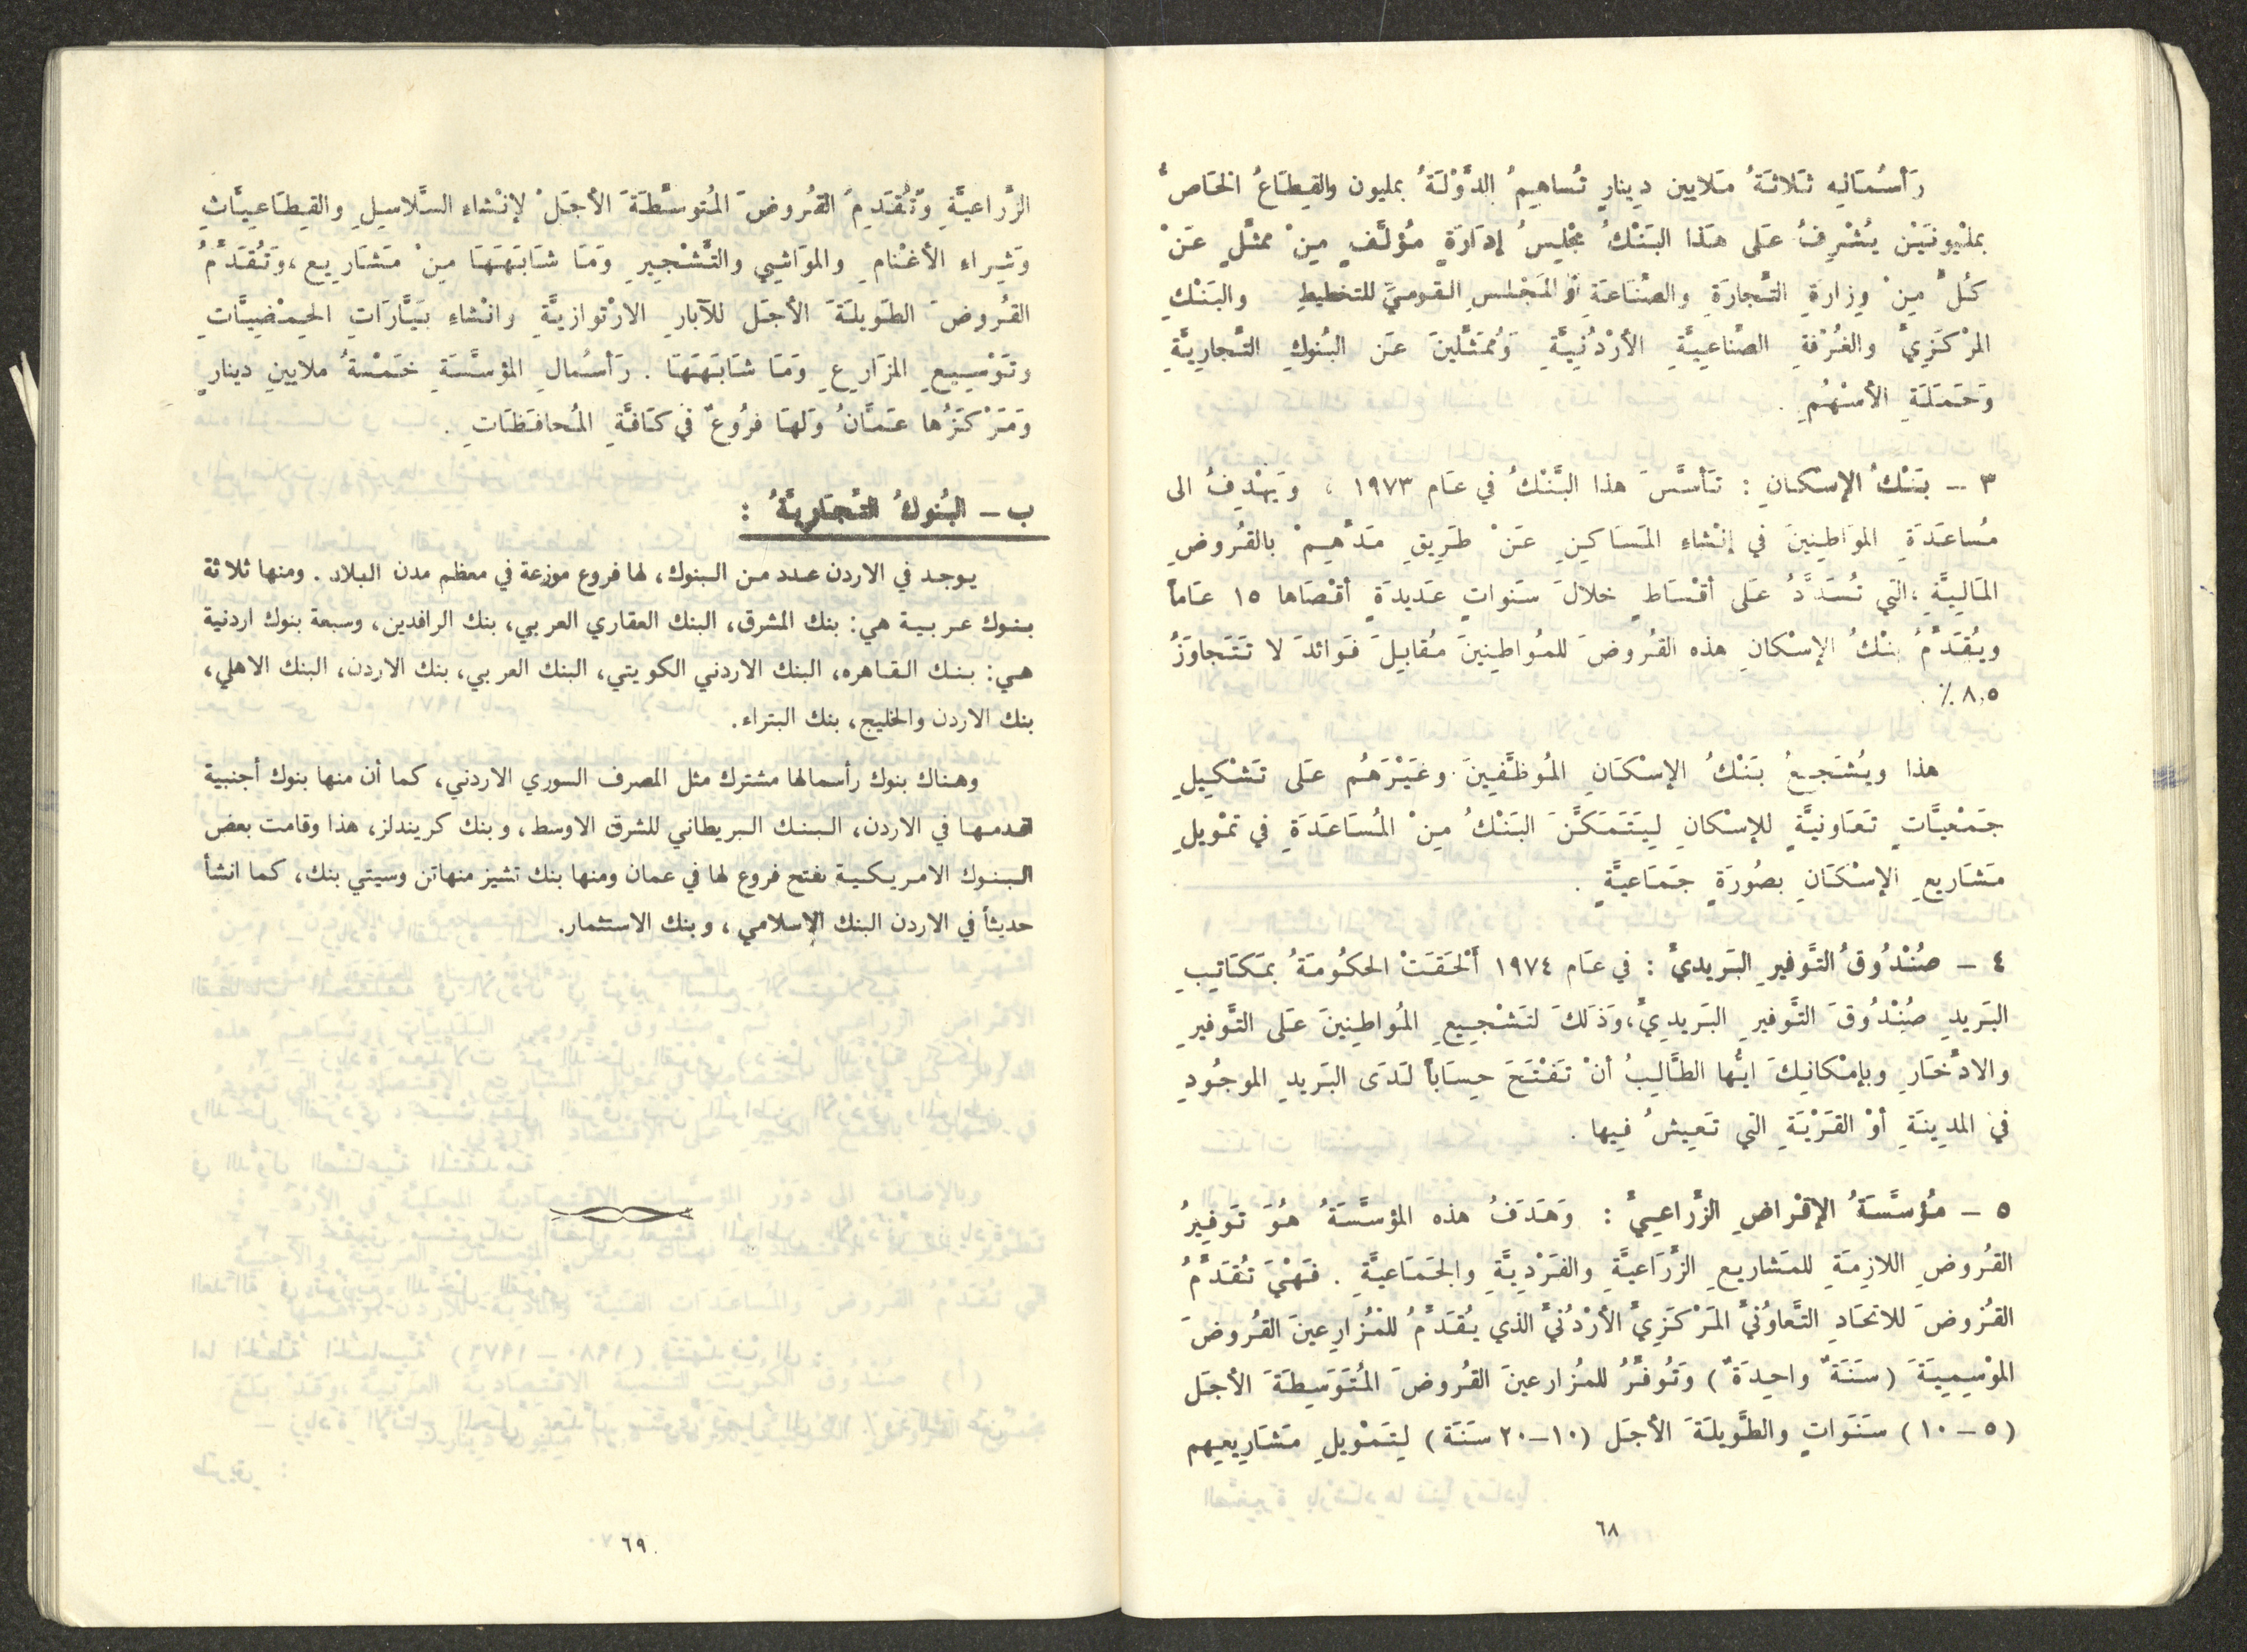 رَأْسُمَالِهِ ثَلاثَةُ مَلايين دِينارٍ تُساهِمُ الدَّوْلَةُ بمليون والقِطَاعُ الخَاصُّ
بمليْونَيْن يُشْرِفُ عَلى هَذا البَنْكُ مَجْلِسُ إدَارَةٍ مُؤلَّفٍ مِنْ ممثَّلٍ عَنْ
كُلٍّ مِنْ وِزارةِ التَّجارَةِ والصِّنَاعَةِ أو المَجْلسِ القوميِّ للتخطيطِ والبَنْكِ
المرْكَزِيِّ والغُرْفةِ الصِّناعيِةَّ الأرْدُنِيَّةِ وَمُمَثَّلينَ عَن البُنوكِ التَّجاريَّةِ
وَحَمَلَةِ الأسْهُمِ .
٣ ـ بَنْكُ الإسْكانِ : تَأسَّسَ هذا البَنْكُ في عَام ١٩٧٣ ، وَيَهْدِفُ الى
مُساعَدَةِ المواطِنِينَ في إنْشاءِ المَسَاكِنِ عَنْ طَرِيقِ مَدِّهِمْ بالقُروضِ
المَاليَّةِ ،التي تُسَدَّدُ عَلى أقْسَاطٍ خلالَ سَنَواتٍ عَديدَةٍ أقْصَاها ١٥ عَاماً
ويُقدِّمُ بنْكُ الإسْكانِ هذه القُروضَ للمُواطِنِينَ مُقابِلَ فَوَائدَ لا تَتَجاوَزُ
٨,٥ ٪ .
هذا ويُشَجِعُ بَنْكُ الإسْكَانِ المُوظَّفِينَ وغَيْرَهُم عَلى تَشْكِيلِ
جَمْعيَّاتٍ تَعَاونيَّةٍ للإسْكانِ لِيَتَمَكَّنَ البَنْكُ مِنْ المُسَاعَدَةِ في تمْويلِ
مَشَاريعِ الإسْكَانِ بصُورَةٍ جَمَاعيَّةٍ .
٤ ـ صُنْدُوقُ التَّوفيرِ البَريديِّ : في عَام ١٩٧٤ أَلْحَقَتْ الحكُومَةُ بمَكاتِبِ
البَريدِ صُنْدُوقَ التَّوفيرِ البَريدِيِّ،وَذَلكَ لتَشْجِيعِ المُواطِنِينَ عَلى التَّوفيرِ
والادِّخَارِ وبإمْكانِكَ ايُّها الطَّالِبُ أنْ تَفْتَحَ حِسَاباً لَدَى البَريدِ الموجُودِ
في المدِينَةِ أوْ القَرْيَةِ التي تَعِيشُ فِيها .
٥ ـ مُؤسَّسَةُ الإقْراضِ الزِّراعيِّ : وَهَدَفُ هذه المؤسَّسَةُ هُوَ تَوفِيرُ
القُروضِ اللازِمَةِ للمَشاريعِ الزِّرَاعيَّةِ والفَرْدِيَّةِ والجَمَاعيَّةِ . فَهْيَ تُقدِّمُ
القُروضَ للاتحَادِ التَّعاوُنيِّ المَرْكَزِيِّ الأرْدُنيِّ الذي يُقدِّمُ للمُزَارِعينَ القُروضَ
الموْسِمِيةَ (سَنَةٌ واحِدَةٌ) وَتُوفِّرُ للمُزارعينَ القُروضَ المُتَوَسِطَةَ الأجَل
(٥ ـ ١٠) سَنَوَاتٍ والطَّويلَةَ الأجَل (١٠ـ٢٠ سَنَة) لِتَمْويلِ مَشَارِيعِهم
٦٨
الزِّراعيَّةِ وَتُقدِمُ القُروضَ المُتوسَّطَةَ الأجَلْ لإنْشاءِ السَّلاسِلِ والقِطَاعِيَّاتِ
وَشِراءِ الأغْنامِ والموَاشِي والتَّشْجيرِ وَمَا شَابَهَهَا مِنْ مَشَاريع،وَتُقدِّمُ
القُروضَ الطَّويلَةَ الأجَل للآبارِ الارْتوازيةَّ وانْشاءِ بَيَّارَاتِ الحِمْضِيَّاتِ
وتَوْسِيعِ المزَارعِ وَمَا شَابَهَهَا . رَأسُمالِ المؤسَّسَةِ خَمْسةُ ملايينِ دينارٍ
وَمَرْكَزُها عَمَّانُ وَلهَا فرُوعٌ في كَافَّةِ المُحافَظَاتِ .
ب ـ البُنوكُ التَّجَاريَّةُ :
يوجد في الاردن عدد من البنوك، لها فروع موزعة في معظم مدن البلاد . ومنها ثلاثة
بنوك عربية هي: بنك المشرق، البنك العقاري العربي، بنك الرافدين، وسبعة بنوك اردنية
هي: بنك القاهره، البنك الاردني الكويتي، البنك العربي، بنك الاردن، البنك الاهلي،
بنك الاردن والخليج، بنك البتراء.
وهناك بنوك رأسمالها مشترك مثل المصرف السوري الاردني، كما أن منها بنوك أجنبية
قدمها في الاردن، البنك البريطاني للشرق الاوسط، وبنك كريندلز، هذا وقامت بعض
البنوك الامريكية بفتح فروع لها في عمان ومنها بنك تشيز منهاتن وسيتي بنك، كما انشأ
حديثاً في الاردن البنك الإسلامي، وبنك الاستثمار.
٦٩